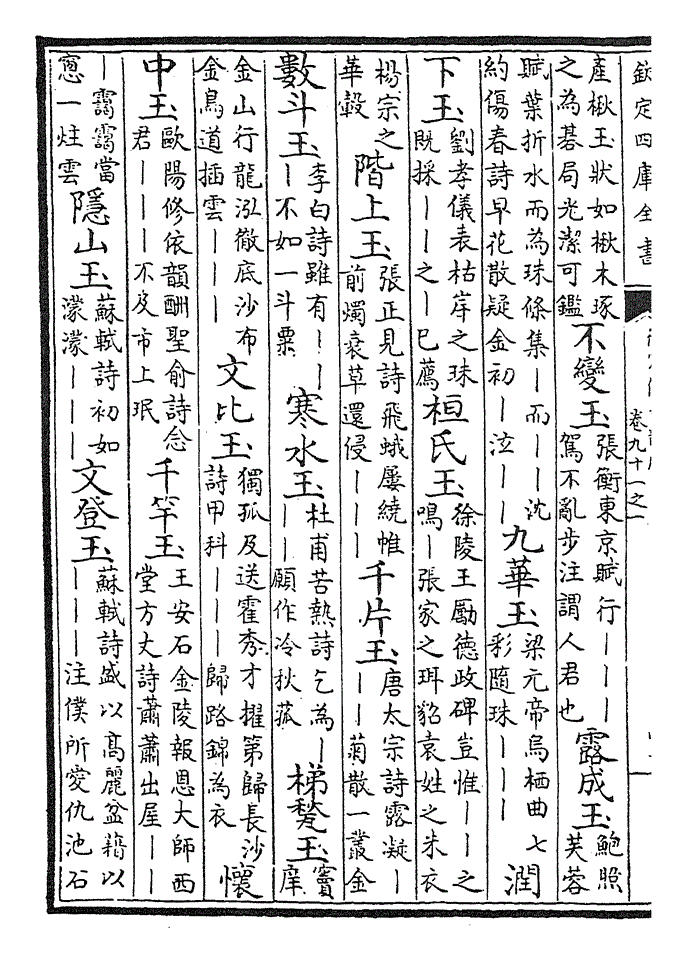 欽定四庫全書
卷九十一之一
產楸玉狀如楸木琢之為棊局光潔可鑑不變玉張衡東京賦行｜｜｜駕不亂步注謂人君也露成玉鮑照芙蓉
賦葉折水而為珠條集｜而｜｜沈約傷春詩早花散疑金初｜泣｜｜九華玉梁元帝烏栖曲七彩隨珠｜｜｜潤
下玉劉孝儀表枯岸之珠既採｜｜之｜已薦桓氏玉徐陵王勵德政碑豈惟｜｜之鳴｜張家之珥貂袁姓之朱衣
楊宗之華轂階上玉張正見詩飛蛾屢繞帷前燭衰草還侵｜｜｜千片玉唐太宗詩露凝｜｜｜菊散一叢金
數斗玉李白詩雖有｜｜｜不如一斗粟寒水玉杜甫苦熱詩乞為｜｜｜願作冷秋菰梯甃玉竇庠
金山行龍泓徹底沙布金鳥道插雲｜｜｜文比玉獨孤及送霍秀才擢第歸長沙詩甲科｜｜｜歸路錦為衣懷
中玉歐陽修依韻酬聖俞詩念君｜｜｜不及市上珉千竿玉王安石金陵報恩大師西堂方丈詩蕭蕭出屋｜｜
｜靄靄當窻一炷雲隱山玉蘇軾詩初如濛濛｜｜｜文登玉蘇軾詩盛以高麗盆藉以｜｜｜注僕所愛仇池石